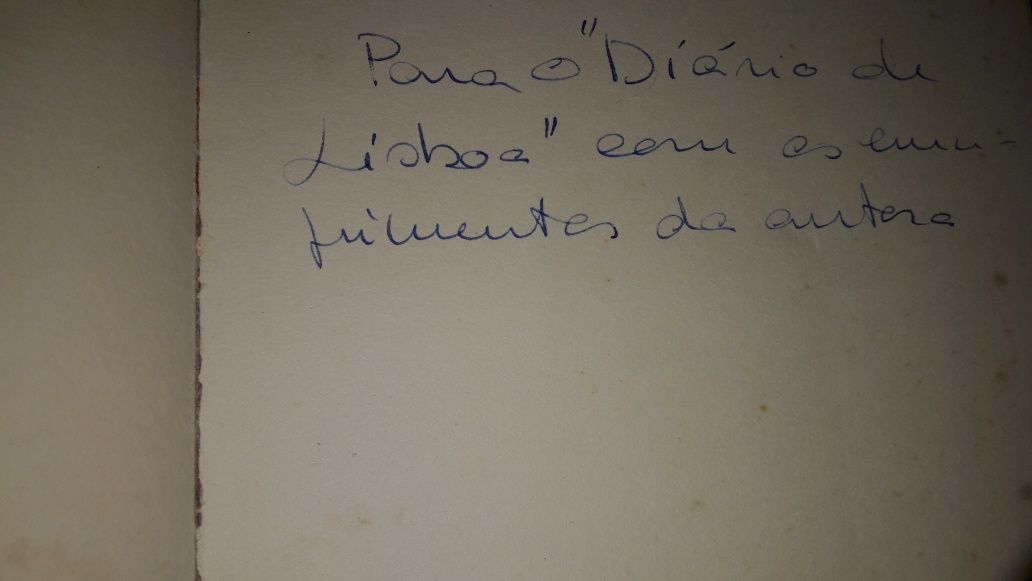 Para o "Diário de
Lisboa" com os cum-
primentos da autora